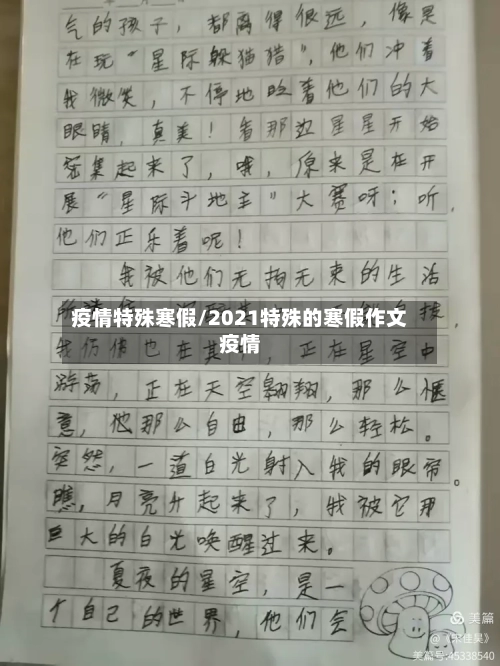 气的孩子，都离得很远，像是
在玩“星际躲猫猎”，他们冲着
我微笑，不停地眨着他们的大
眼睛，真美！看那边星星开始
密集起来了，哦，原来是在开
展“星际斗地主”大赛呀；听，
他们正乐着呢！
我被他们无拘无束的生活
疫情特殊寒假/2021特殊的寒假作文
疫情
我仿佛也在其中，正在星空中
游荡，正在天空翱翔，那么惬
意，他那么自由，那么轻松。
突然，一道白光射入我的眼帘。
瞧，月亮升起来了，我被它那
巨大的白光唤醒过来。
夏夜的星空，是一
个自己的世界，他们会
美篇
@《宋佳昊》
美篇号:45338540